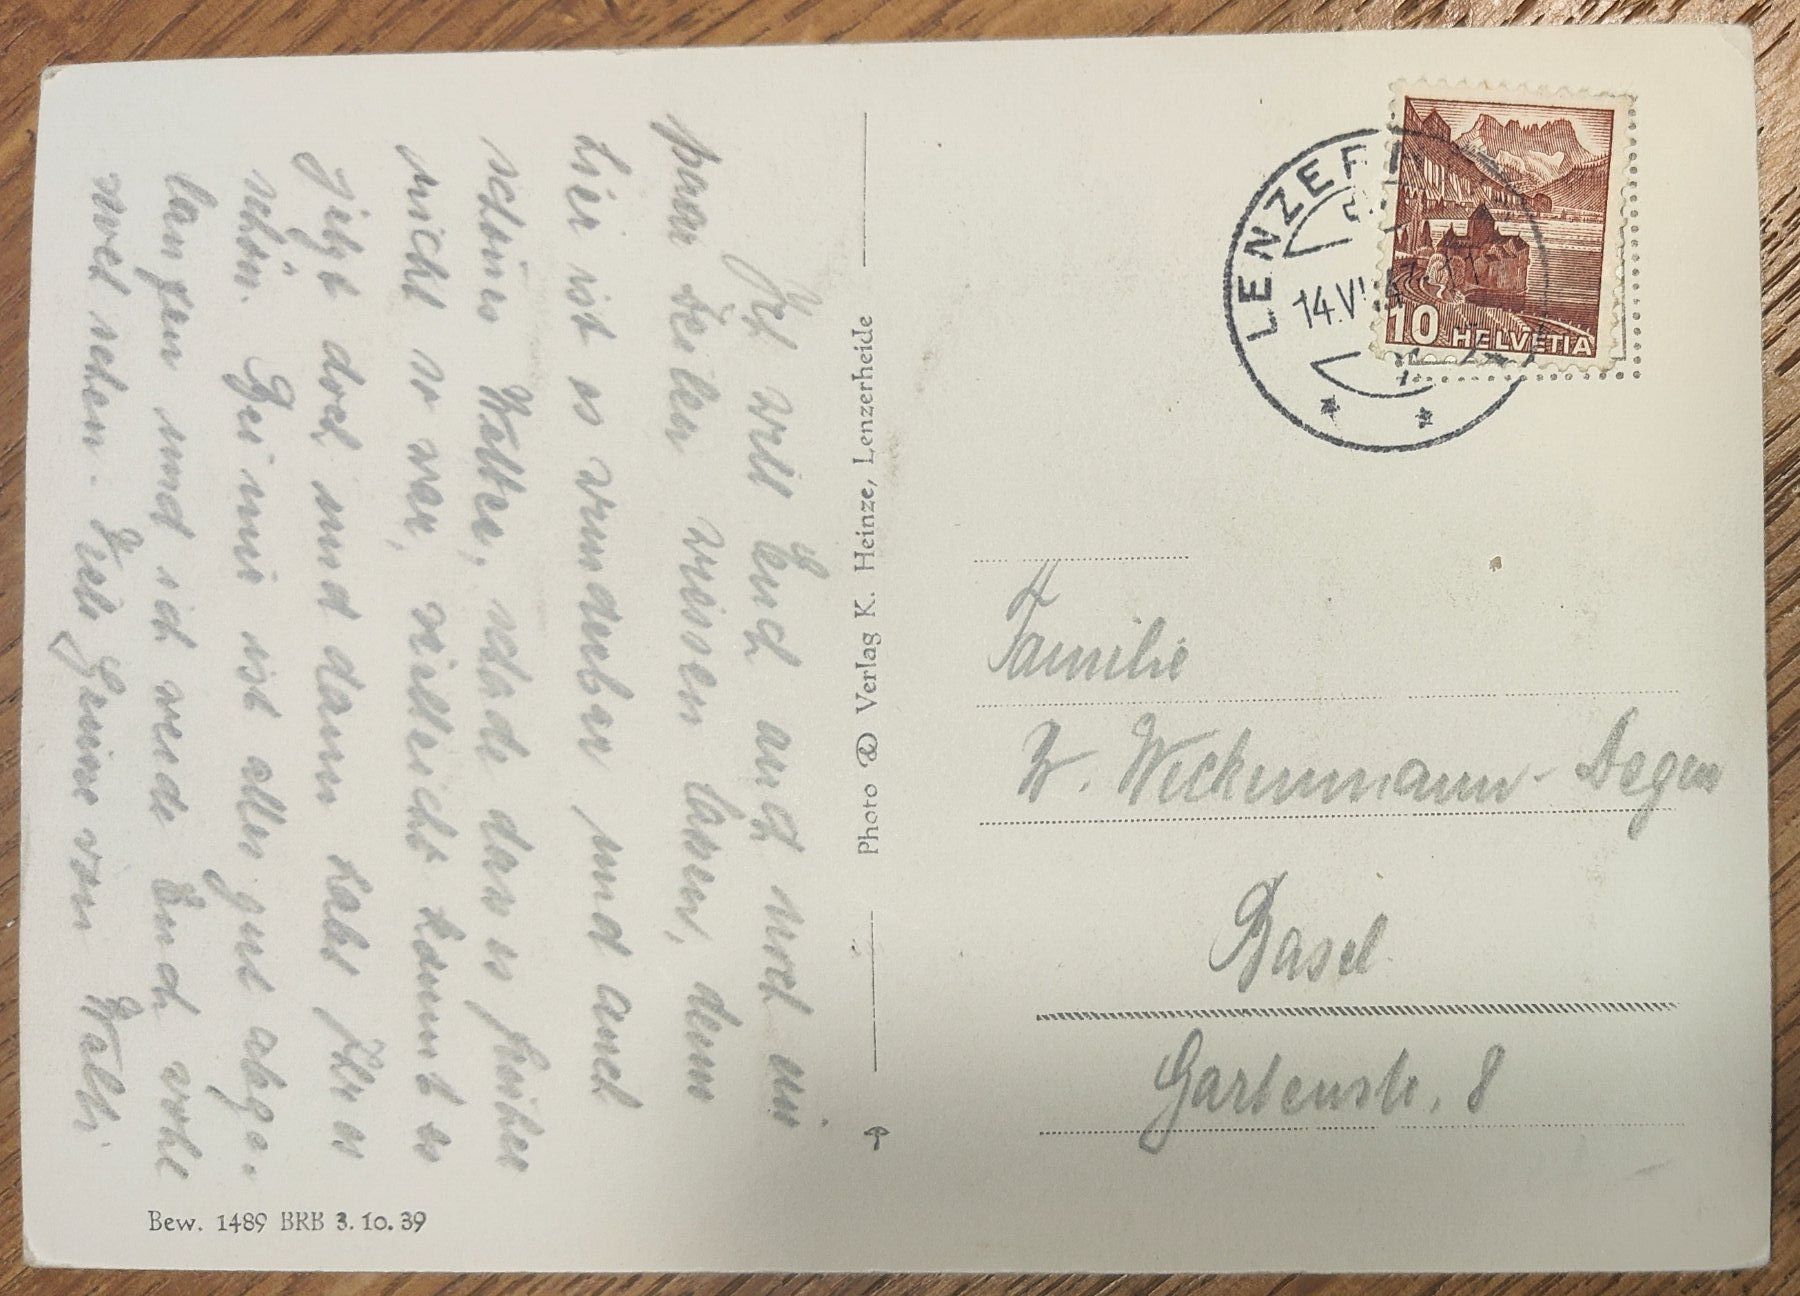 Ich will Euch auch noch ein
paar Zeilen wissen lassen, denn
hier ist es wunderbar und auch
schönes Wetter, schade dass es früher
nicht so war, vielleicht kommt es
jetzt doch und dann habt Ihr es
schön. Bei mir ist alles gut abge-
laufen und ich werde Euch wohl
noch sehen. Viele Grüsse von Wälti
Bew. 1489 BRB 3.10.39
Photo Verlag K. Heinze, Lenzerheide
LENZERH
14.VI
10 HELVETIA
Familie
W. Weckenmann-Degen
Basel
Gartenstr. 8